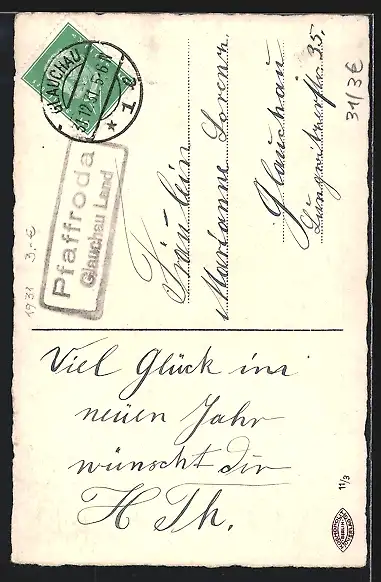 GLAUCHAU
30.12.31. 5-6 N
* 1 d
Pfaffroda
Glauchau Land
Fräulein
Marianne Lorenz
Glauchau
Lungwitzerstr. 35.
31/3€
1931 3,-€
Viel Glück im
neuen Jahr
wünscht dir
H Th.
11/3